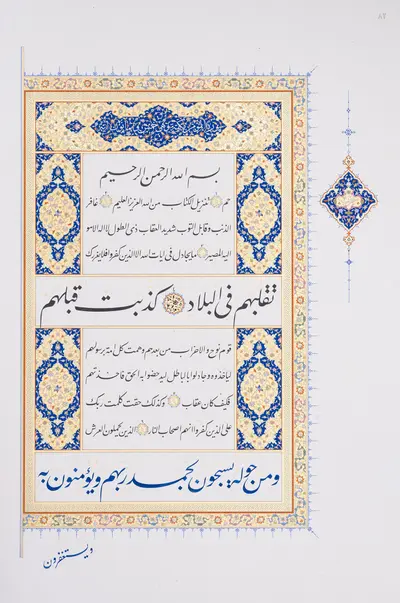 ٨٢
بسم الله الرحمن الرحيم
حم تنزيل الكتاب من الله العزيز العليم غافر
الذنب وقابل التوب شديد العقاب ذى الطول لا اله الا هو
اليه المصير ما يجادل فى ايات الله الا الذين كفروا فلا يغررك
تقلبهم فى البلاد كذبت قبلهم
قوم نوح والاحزاب من بعدهم وهمت كل امة برسولهم
لياخذوه وجادلوا بالباطل ليدحضوا به الحق فاخذتهم
فكيف كان عقاب وكذلك حقت كلمت ربك
على الذين كفروا انهم اصحاب النار الذين يحملون العرش
ومن حوله يسبحون بحمد ربهم ويؤمنون به
ويستغفرون